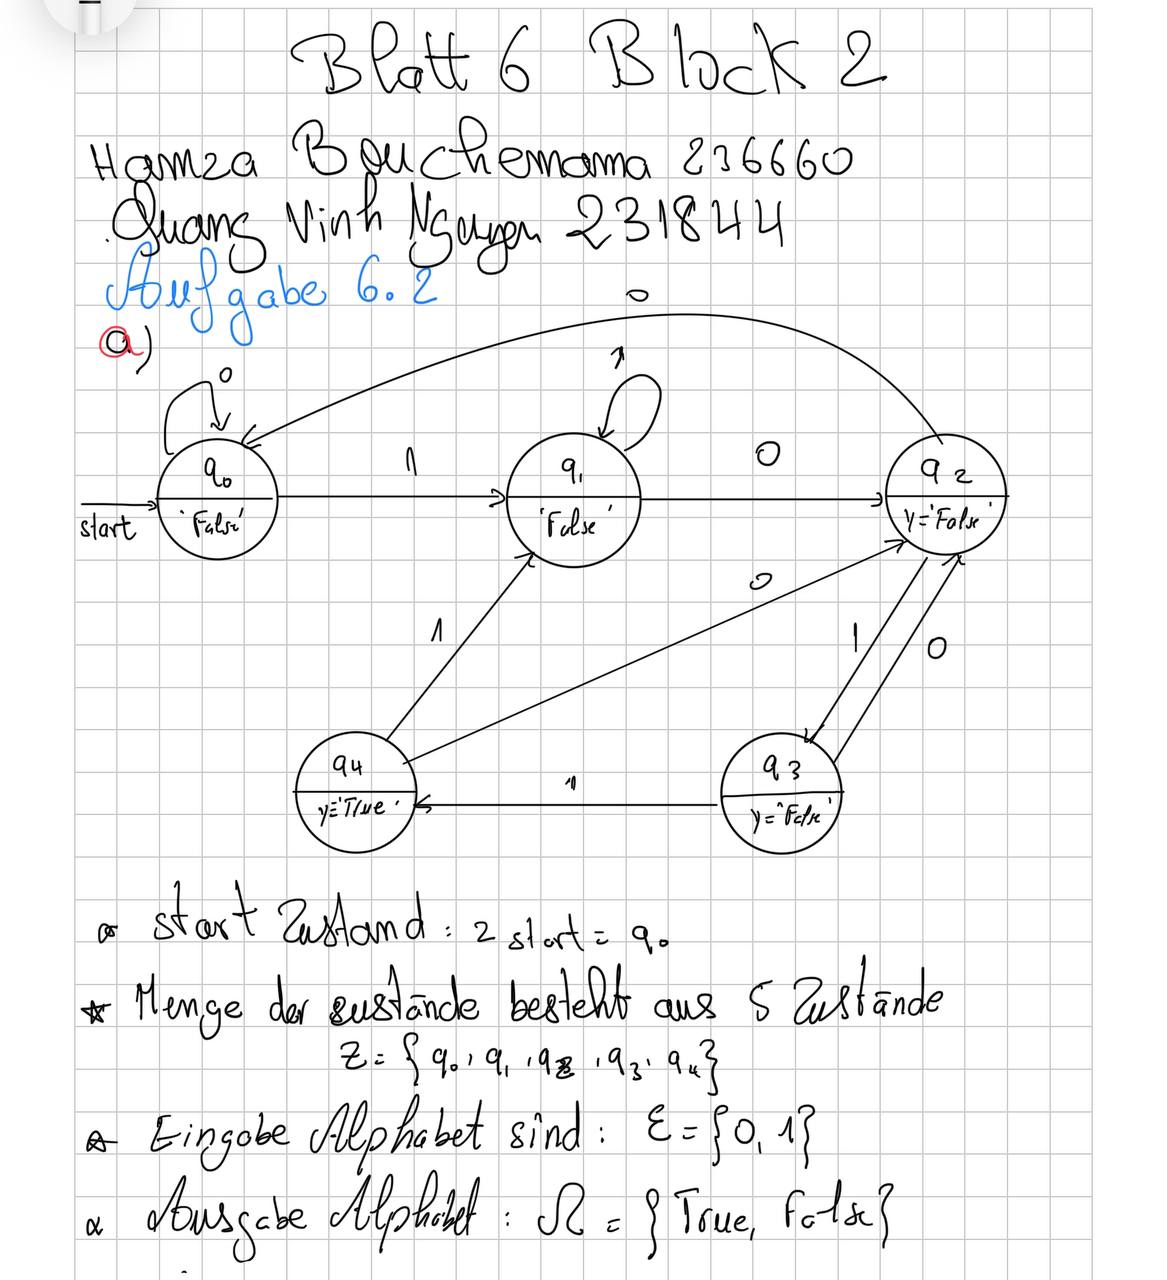 Blatt 6 Block 2
Hamza Bouchemama 236660
Quang Vinh Nguyen 231844
Aufgabe 6.2
a)
0
1
0
q0
'False'
start
1
q1
'False'
0
q2
y='False'
1
0
1
0
q4
y='True'
1
q3
y='False'
start Zustand: z start = q0
* Menge der zustände besteht aus 5 Zustände
Z = { q0, q1, q2, q3, q4}
Eingabe Alphabet sind: Ɛ = {0, 1}
Ausgabe Alphabet: Ω = {True, False}